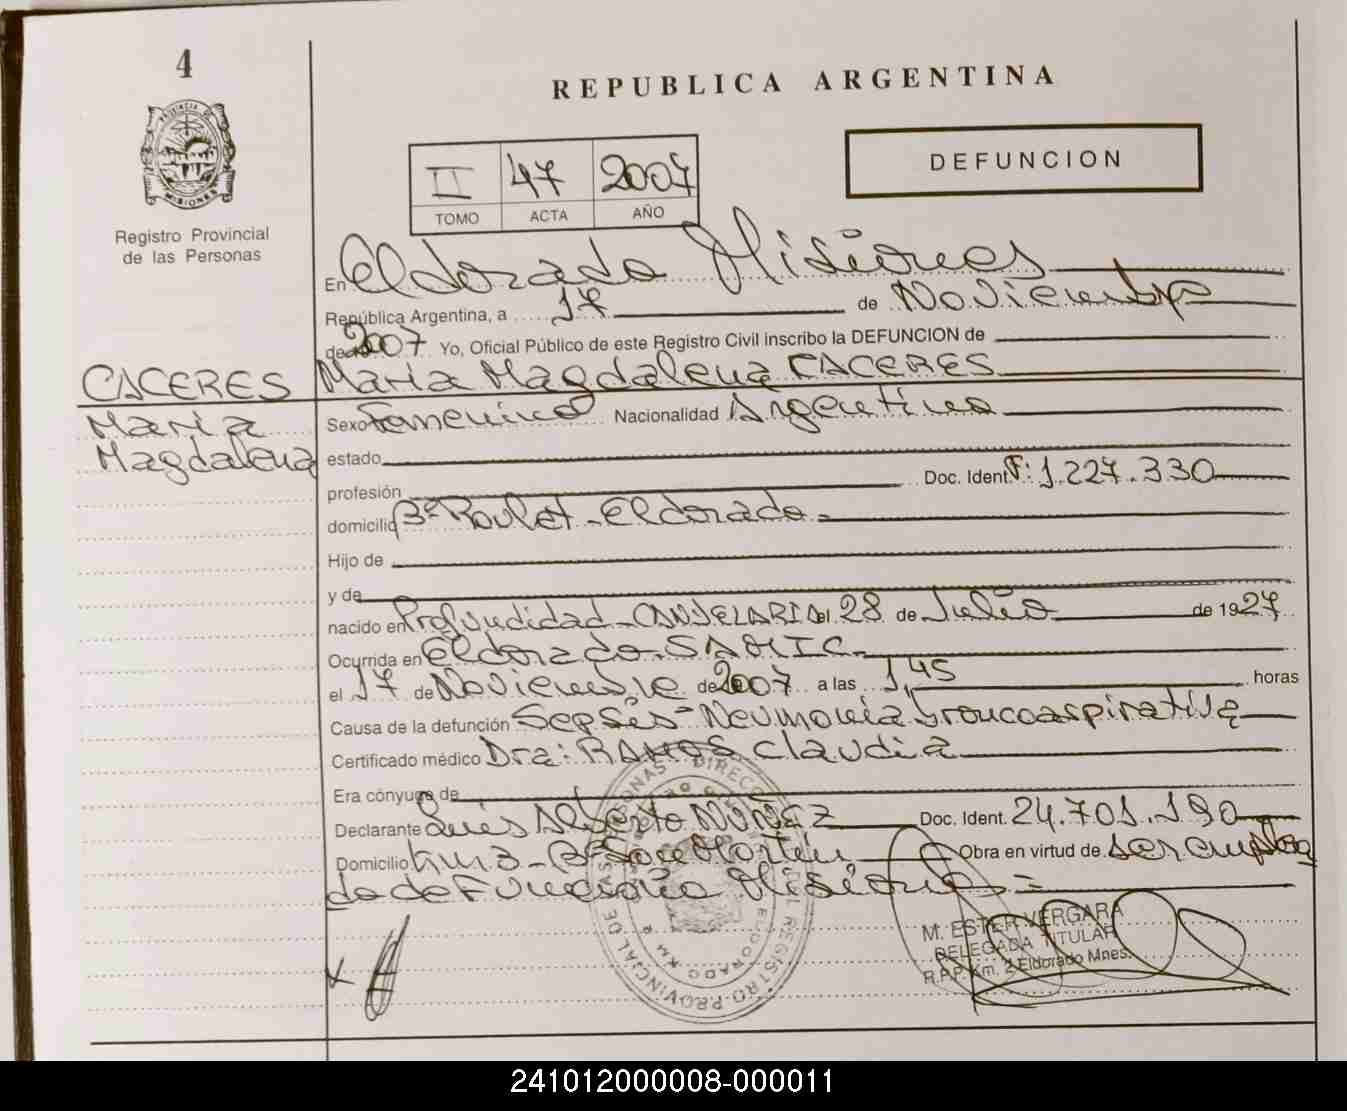 4
REPUBLICA ARGENTINA
PROVINCIA DE
MISIONES
Registro Provincial
de las Personas
II 47 2007
TOMO ACTA AÑO
DEFUNCION
En Eldorado Misiones
República Argentina, a 17 de Noviembre
de 2007 Yo, Oficial Público de este Registro Civil inscribo la DEFUNCION de
CACERES Maria Magdalena CACERES
Maria
Magdalena
Sexo Femenino Nacionalidad Argentina
estado
profesión Doc. Ident F: 1.227.330
domicilio Bº Roulet - Eldorado
Hijo de
y de
nacido en Profundidad - CANDELARIA el 28 de Julio de 1927
Ocurrida en Eldorado - SAMIC
el 17 de Noviembre de 2007 a las 1,45 horas
Causa de la defunción Sepsis - Neumonia broncoaspirativa
Certificado médico Dra: RAMOS Claudia
Era cónyuge de
Declarante Luis Alberto NUÑEZ Doc. Ident. 24.701.190
Domicilio Km 3 - Obra en virtud de ser emplea
do de Funeraria Misiones
M. ESTER VERGARA
DELEGADA TITULAR
R.P.P. Km. 2 Eldorado Mnes.
241012000008-000011